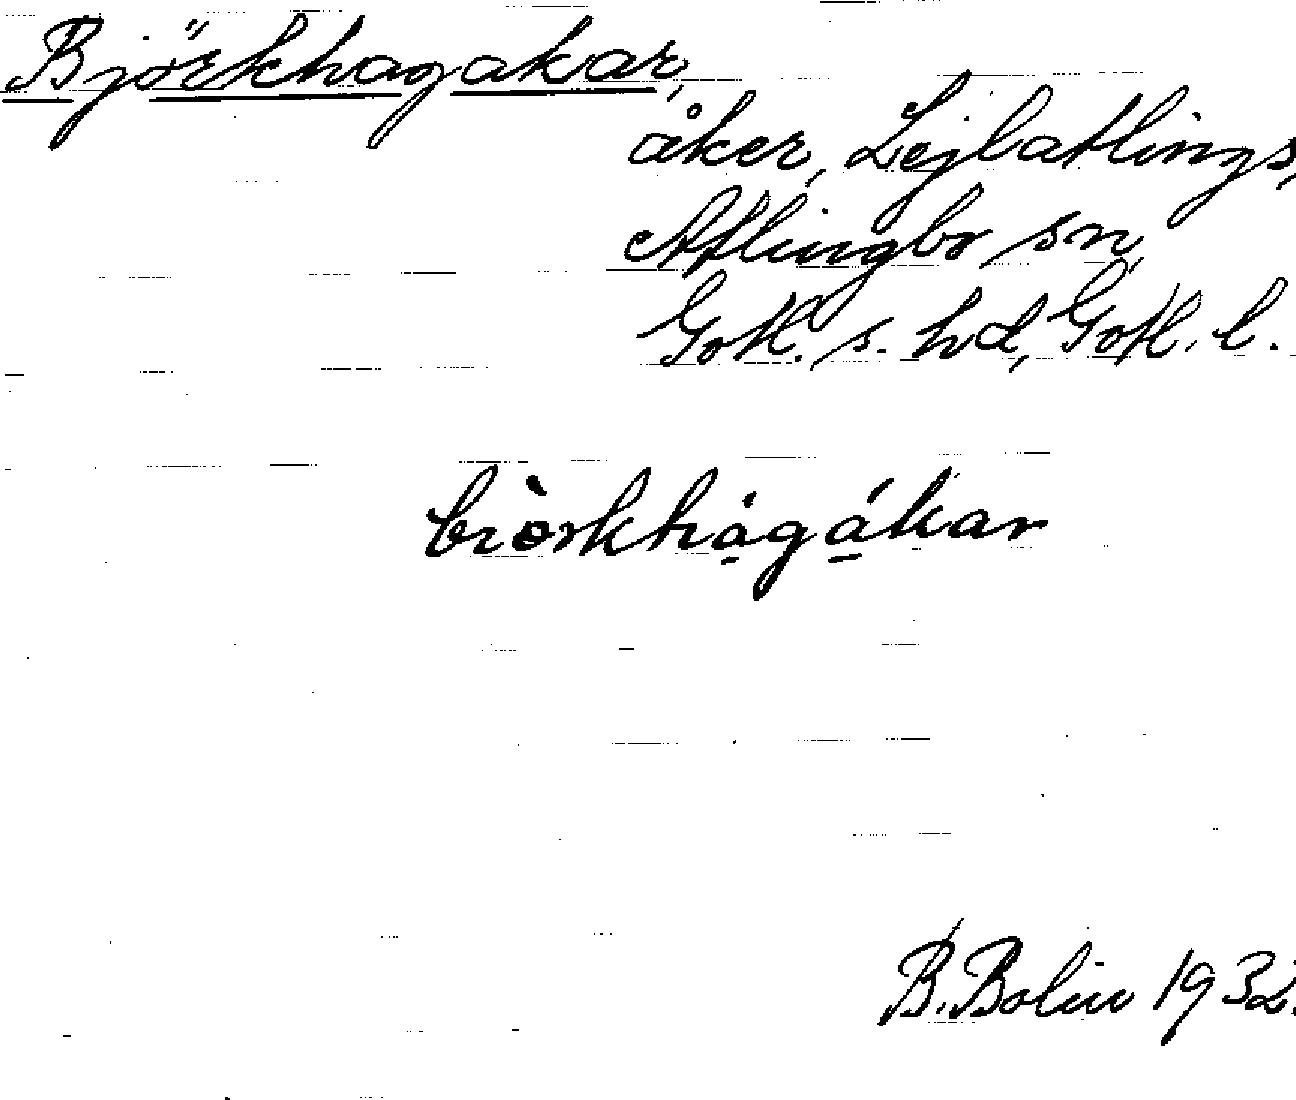 Björkhagakar,
åker, Lejlatlings,
Atlingbo sn,
Gotl. s. hd, Gotl. l.
biòrkhagákar
B. Bolin 1932.